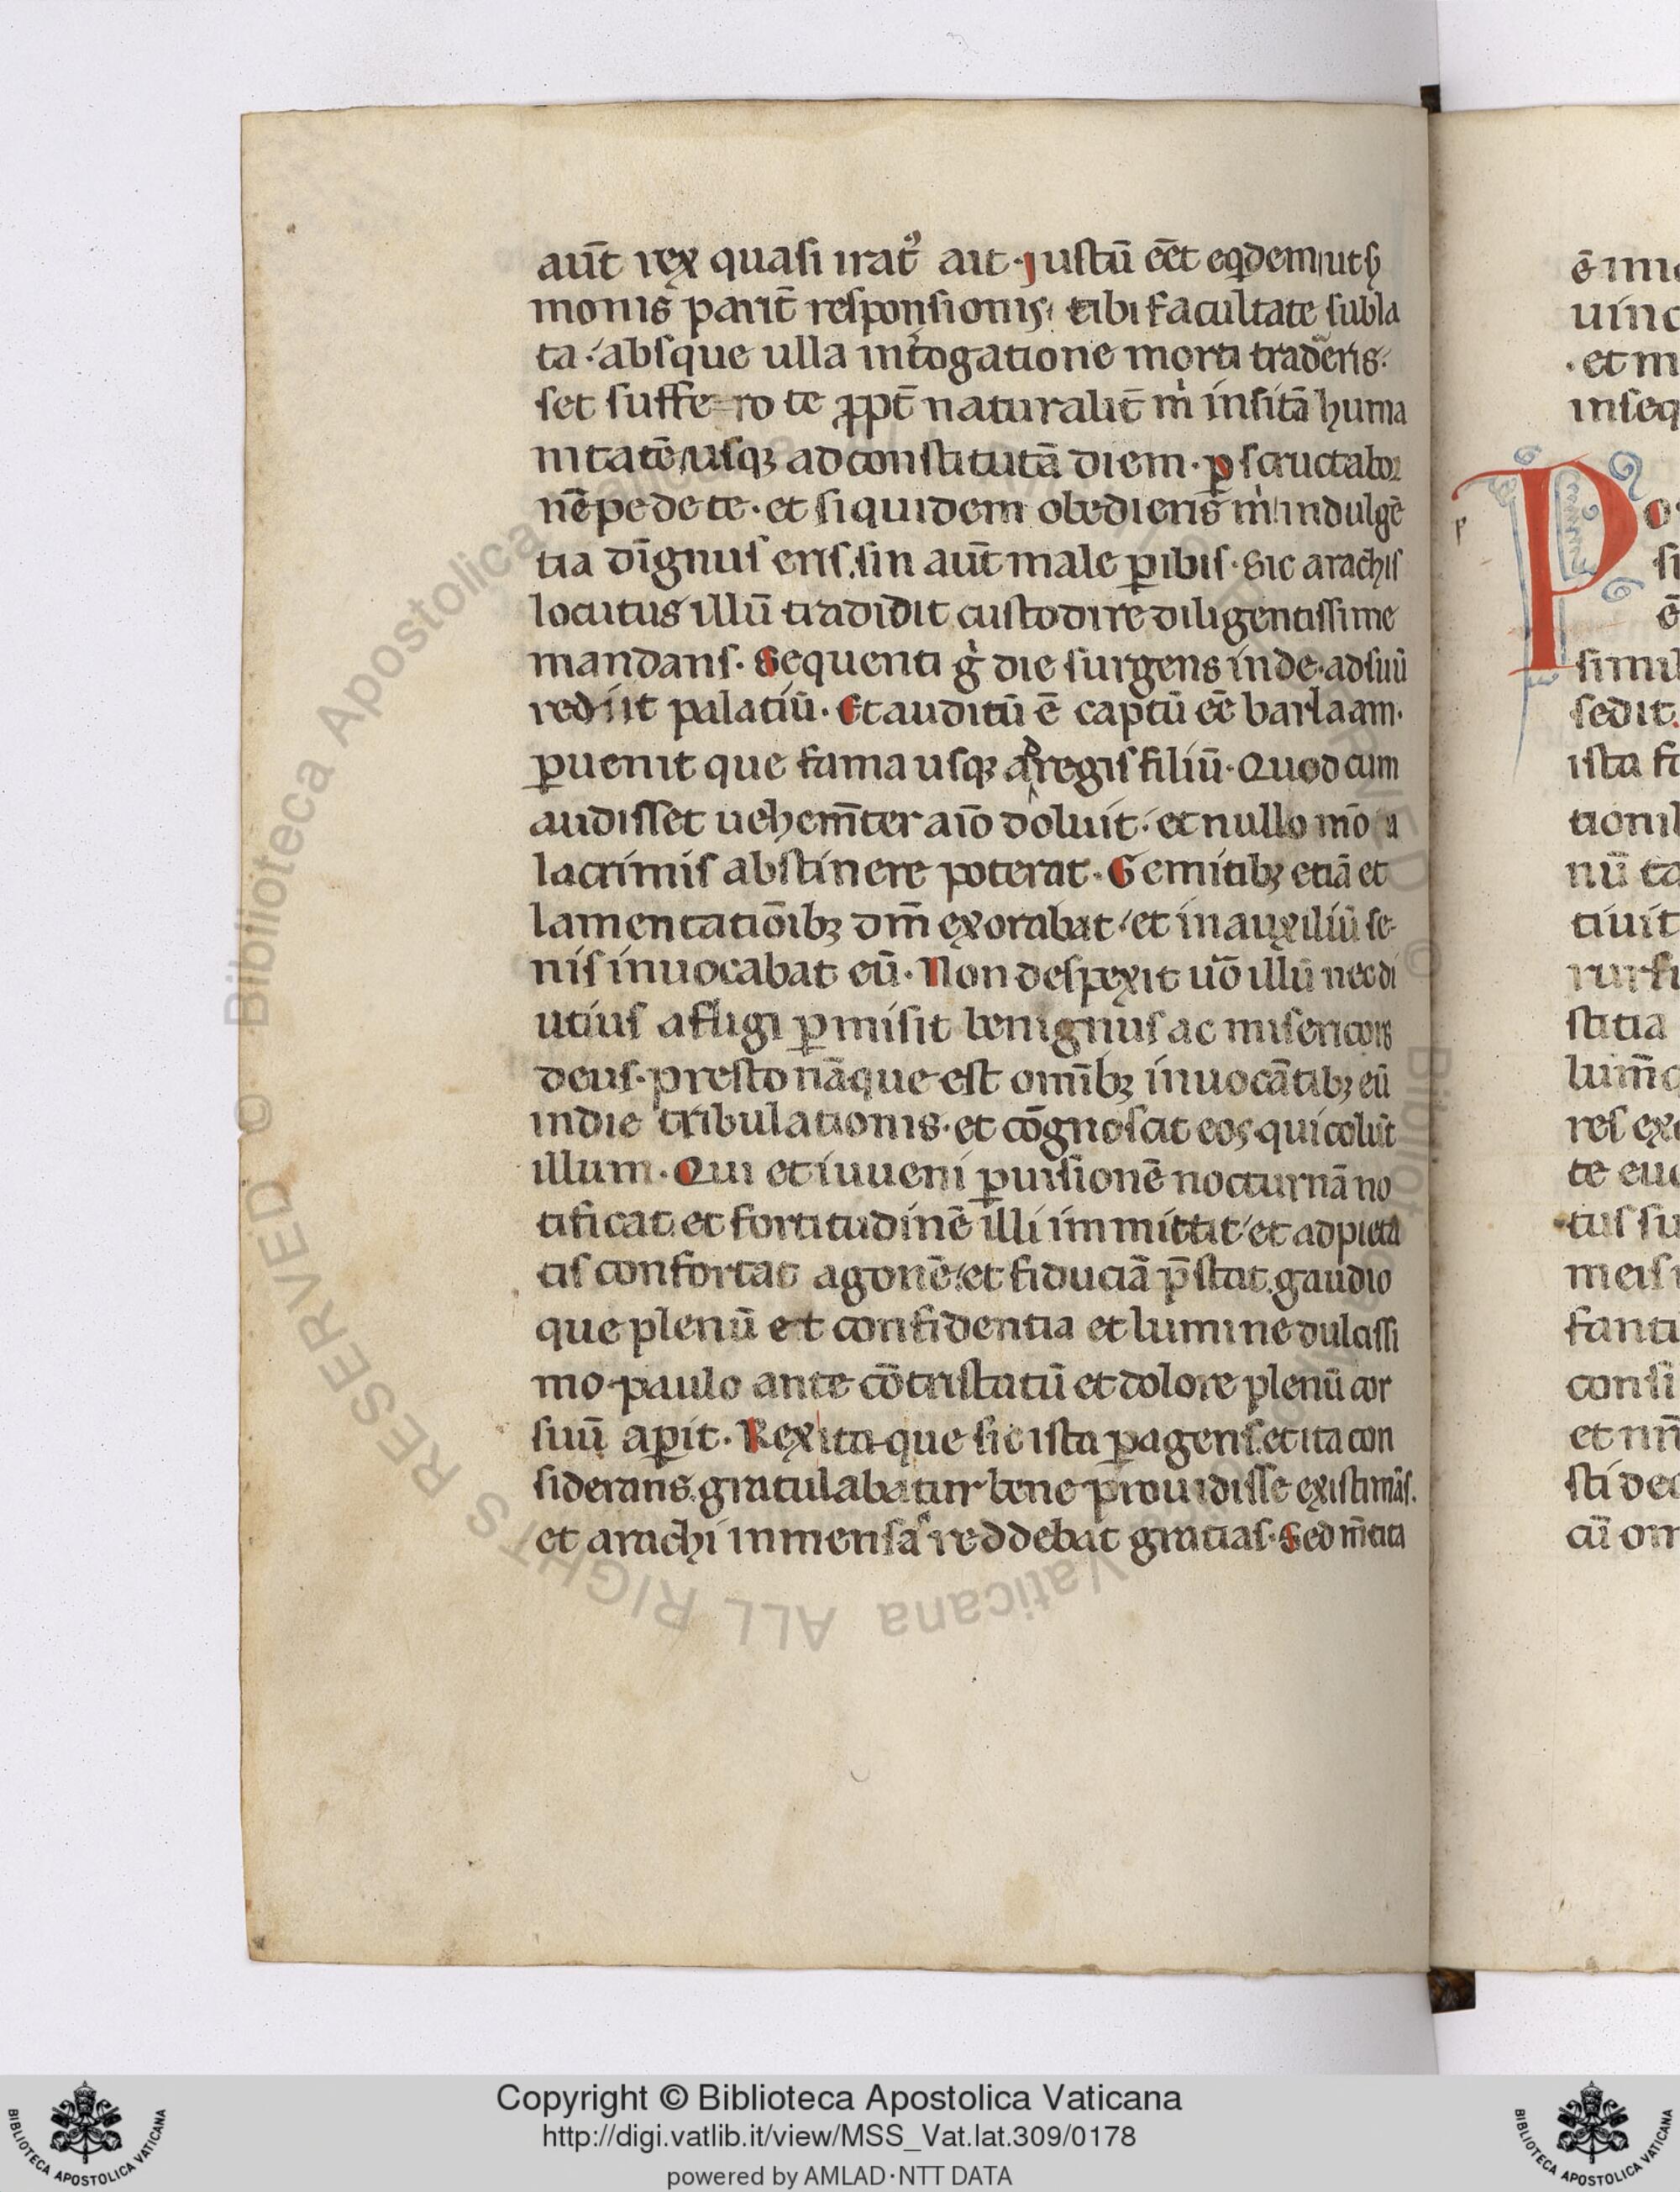 aūt rex quasi irat᾿ ait · justū eēt eqdem ut s᷒
monis parit̄ responsionis, tibi facultate subla
ta · absque ulla int̓rogatione morti traderis ·
set suffe=ro te ꝓpt̄ naturalit̄ m̓ insitā huma
nitatē usqꝫ ad constitutā diem · ꝑscructabor
nēpe de te · et siquidem obediens m̓ indulgē
tia dīgnus eris. sin aūt male ꝑibis · Sic arachis
locutus illū tradidit custodire diligentissime
mandans · Sequenti g̓ die surgens inde · ad suū
rediit palatiū · Et auditū ē captū eē barlaam ·
ꝑuenit que fama usqꝫ ad regis filiū · Quod cum
audisset uehem̄ter aīo doluit · et nullo mō a
lacrimis abstinere poterat · Gemitibꝫ etiā et
lamentatiōibꝫ dm̄ exorabat · et in auxiliū se-
nis inuocabat eū · Non despexit uō illū nec di
utius afligi ꝑmisit benignus ac misericors
deus · presto nāque est omībꝫ inuocātibꝫ eū
in die tribulationis · et cōgnoscit eos qui colūt
illum · Qui et iuueni ꝑ uisionē nocturnā no
tificat et fortitudinē illi immittit · et ad pieta
tis confortat agonē · et fiduciā p̄stat. gaudio
que plenū et confidentia et lumine dulcissi
mo paulo ante cōtristatū et dolore plenū cor
suū aꝑit · Rex ita que sic ista ꝑagens. et ita con
siderans. gratulabatur bene prouidisse existimās.
et arachi inmensas reddebat gratias · Sed m̄tita
ē imi
uinc
· et m
inseq
P
o
si
ē
simil
sedit.
ista fa
tionib
nū ta
tiuit
rursu
stitia
lum̄
res exe
te euo
tus su
meis
fanti
consi
et nn̄
sti deo
cū om
Copyright © Biblioteca Apostolica Vaticana
http://digi.vatlib.it/view/MSS_Vat.lat.309/0178
powered by AMLAD·NTT DATA
BIBLIOTECA APOSTOLICA VATICANA
BIBLIOTECA APOSTOLICA VATICANA
© Biblioteca Apostolica Vaticana ALL RIGHTS RESERVED